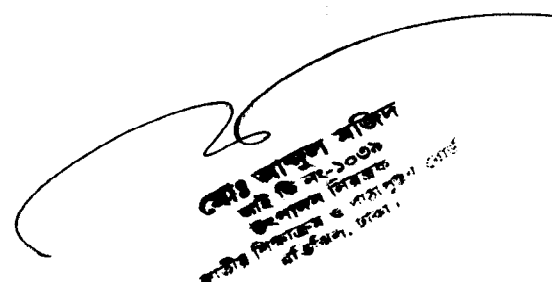 মোঃ আব্দুল মজিদ
আই ডি নং-১০৩৯
উৎপাদন নিয়ন্ত্রক
জাতীয় শিক্ষাক্রম ও পাঠ্যপুস্তক বোর্ড
মতিঝিল, ঢাকা।